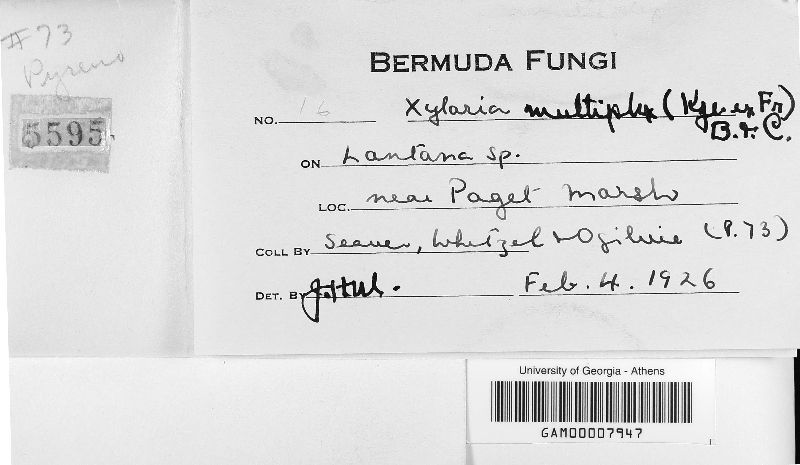 #73
Pyreno
5595
BERMUDA FUNGI
NO. 16 Xylaria multiplex (Kze. ex Fr) B. & C.
ON Lantana sp.
LOC. near Paget Marsh
COLL BY Seaver, Whetzel & Ogilvie (P. 73)
DET. BY Feb. 4. 1926
University of Georgia - Athens
GAM00007947